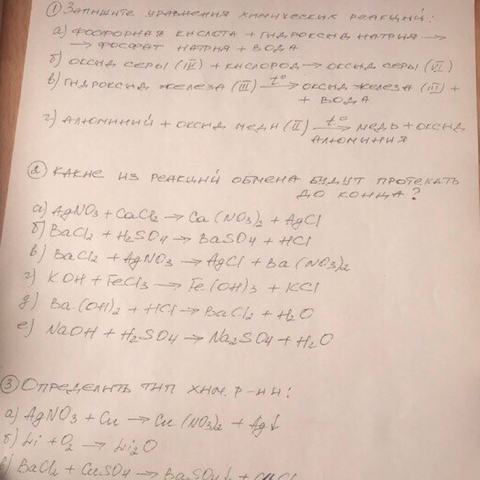 ① Запишите уравнения химических реакций:
а) фосфорная кислота + гидроксид натрия →
→ фосфат натрия + вода
б) оксид серы (IV) + кислород → оксид серы (VI)
в) гидроксид железа (III) t° → оксид железа (III) +
+ вода
г) алюминий + оксид меди (II) t° → медь + оксид
алюминия
② Какие из реакций обмена будут протекать
до конца?
а) AgNO3 + CaCl2 → Ca(NO3)2 + AgCl
б) BaCl2 + H2SO4 → BaSO4 + HCl
в) BaCl2 + AgNO3 → AgCl + Ba(NO3)2
г) KOH + FeCl3 → Fe(OH)3 + KCl
д) Ba(OH)2 + HCl → BaCl2 + H2O
е) NaOH + H2SO4 → Na2SO4 + H2O
③ Определить тип хим. р-ии:
а) AgNO3 + Cu → Cu(NO3)2 + Ag↓
б) Li + O2 → Li2O
в) BaCl2 + CuSO4 → BaSO4↓ +